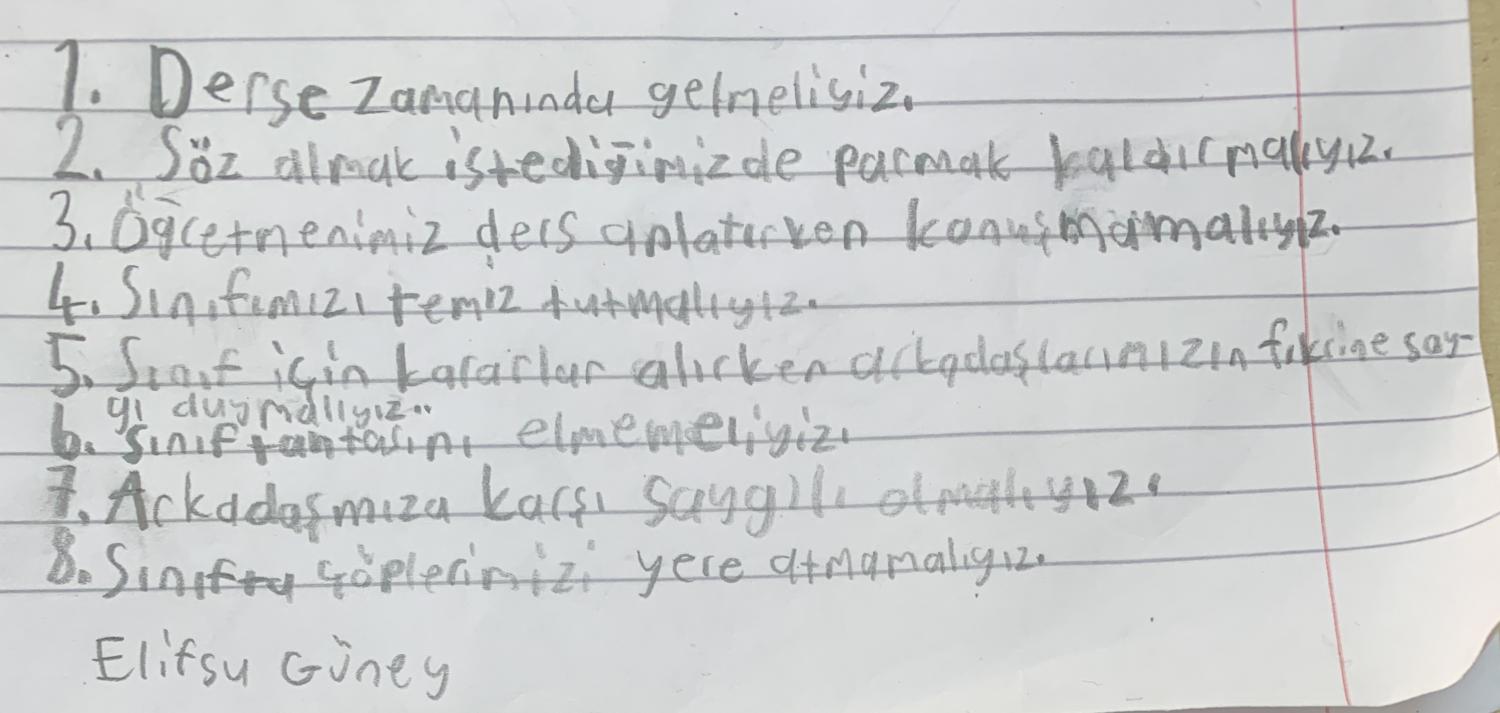 1. Derse zamanında gelmeliyiz.
2. Söz almak istediğimizde parmak kaldırmalıyız.
3. Öğretmenimiz ders anlatırken konuşmamalıyız.
4. Sınıfımızı temiz tutmalıyız.
5. Sınıf için kararlar alırken arkadaşlarımızın fikrine say-
gı duymalıyız..
6. Sınıf elmemeliyiz.
7. Arkadaşmıza karşı saygılı olmalıyız.
8. Sınıfta çöplerimizi yere atmamalıyız.
Elifsu Güney